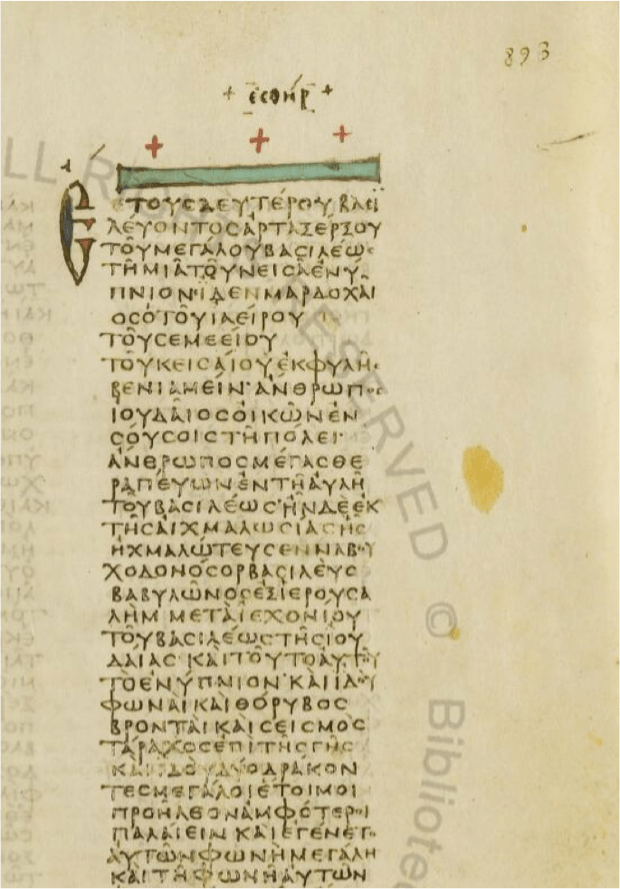 893
+ ΕϹΘΗΡ +
+ + +
ΕΤΟΥϹΔΕΥΤΕΡΟΥΒΑϹΙ
ΛΕΥΟΝΤΟϹΑΡΤΑΞΕΡΞΟΥ
ΤΟΥΜΕΓΑΛΟΥΒΑϹΙΛΕΩϹ
ΤΗΜΙΑΤΟΥΝΕΙϹΑΕΝΥ
ΠΝΙΟΝΙΔΕΝΜΑΡΔΟΧΑΙ
ΟϹΟΤΟΥΙΑΕΙΡΟΥ
ΤΟΥϹΕΜΕΕΙΟΥ
ΤΟΥΚΕΙϹΑΙΟΥΕΚΦΥΛΗϹ
ΒΕΝΙΑΜΕΙΝ·ΑΝΘΡΩΠΟϹ
ΙΟΥΔΑΙΟϹΟΙΚΩΝΕΝ
ϹΟΥϹΟΙϹΤΗΠΟΛΕΙ·
ΑΝΘΡΩΠΟϹΜΕΓΑϹΘΕ
ΡΑΠΕΥΩΝΕΝΤΗΑΥΛΗ
ΤΟΥΒΑϹΙΛΕΩϹ·ΗΝΔΕΕΚ
ΤΗϹΑΙΧΜΑΛΩϹΙΑϹΗϹ
ΗΧΜΑΛΩΤΕΥϹΕΝΝΑΒΟΥ
ΧΟΔΟΝΟϹΟΡΒΑϹΙΛΕΥϹ
ΒΑΒΥΛΩΝΟϹΕΞΙΕΡΟΥϹΑ
ΛΗΜ ΜΕΤΑΙΕΧΟΝΙΟΥ
ΤΟΥΒΑϹΙΛΕΩϹΤΗϹΙΟΥ
ΔΑΙΑϹ ΚΑΙΤΟΥΤΟΑΥΤΟΥ
ΤΟΕΝΥΠΝΙΟΝ·ΚΑΙΙΔΟΥ
ΦΩΝΑΙΚΑΙΘΟΡΥΒΟϹ
ΒΡΟΝΤΑΙΚΑΙϹΕΙϹΜΟϹ
ΤΑΡΑΧΟϹΕΠΙΤΗϹΓΗϹ
ΚΑΙΙΔΟΥΔΥΟΔΡΑΚΟΝ
ΤΕϹΜΕΓΑΛΟΙΕΤΟΙΜΟΙ
ΠΡΟΗΛΘΟΝΑΜΦΟΤΕΡΟΙ
ΠΑΛΑΙΕΙΝ ΚΑΙΕΓΕΝΕΤΟ
ΑΥΤΩΝΦΩΝΗΜΕΓΑΛΗ
ΚΑΙΤΗΦΩΝΗΑΥΤΩΝ